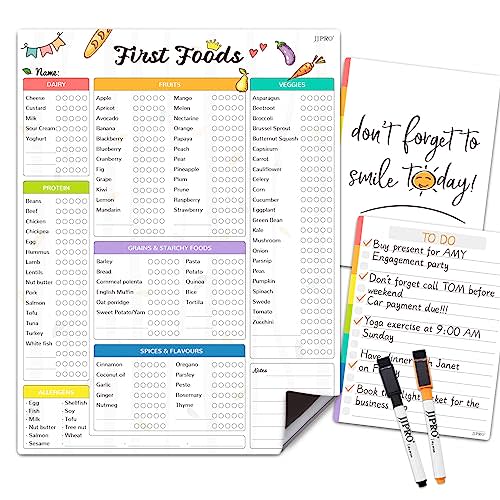 First Foods
JJPRO®
Name:
DAIRY
Cheese
Custard
Milk
Sour Cream
Yoghurt
PROTEIN
Beans
Beef
Chicken
Chickpea
Egg
Hummus
Lamb
Lentils
Nut butter
Pork
Salmon
Tofu
Tuna
Turkey
White fish
ALLERGENS
- Egg
- Fish
- Milk
- Nut butter
- Salmon
- Sesame
- Shellfish
- Soy
- Tofu
- Tree nut
- Wheat
FRUITS
Apple
Apricot
Avocado
Banana
Blackberry
Blueberry
Cranberry
Fig
Grape
Kiwi
Lemon
Mandarin
Mango
Melon
Nectarine
Orange
Papaya
Peach
Pear
Pineapple
Plum
Prune
Raspberry
Strawberry
GRAINS & STARCHY FOODS
Barley
Bread
Cornmeal polenta
English Muffin
Oat porridge
Sweet Potato/Yam
Pasta
Potato
Quinoa
Rice
Tortilla
SPICES & FLAVOURS
Cinnamon
Coconut oil
Garlic
Ginger
Nutmeg
Oregano
Parsley
Pesto
Rosemary
Thyme
VEGGIES
Asparagus
Beetroot
Broccoli
Brussel Sprout
Butternut Squash
Capsicum
Carrot
Cauliflower
Celery
Corn
Cucumber
Eggplant
Green Bean
Kale
Mushroom
Onion
Parsnip
Peas
Pumpkin
Spinach
Swede
Tomato
Zucchini
Notes
don't forget to
smile today!
TO DO
Buy present for AMY
Engagement party
Don't forget call TOM before
weekend
Car payment due!!!
Yoga exercise at 9:00 AM
Sunday
Have dinner with Janet
on
Book the flight ticket for the
business
JJPRO®
JJPRO®
JJPRO®